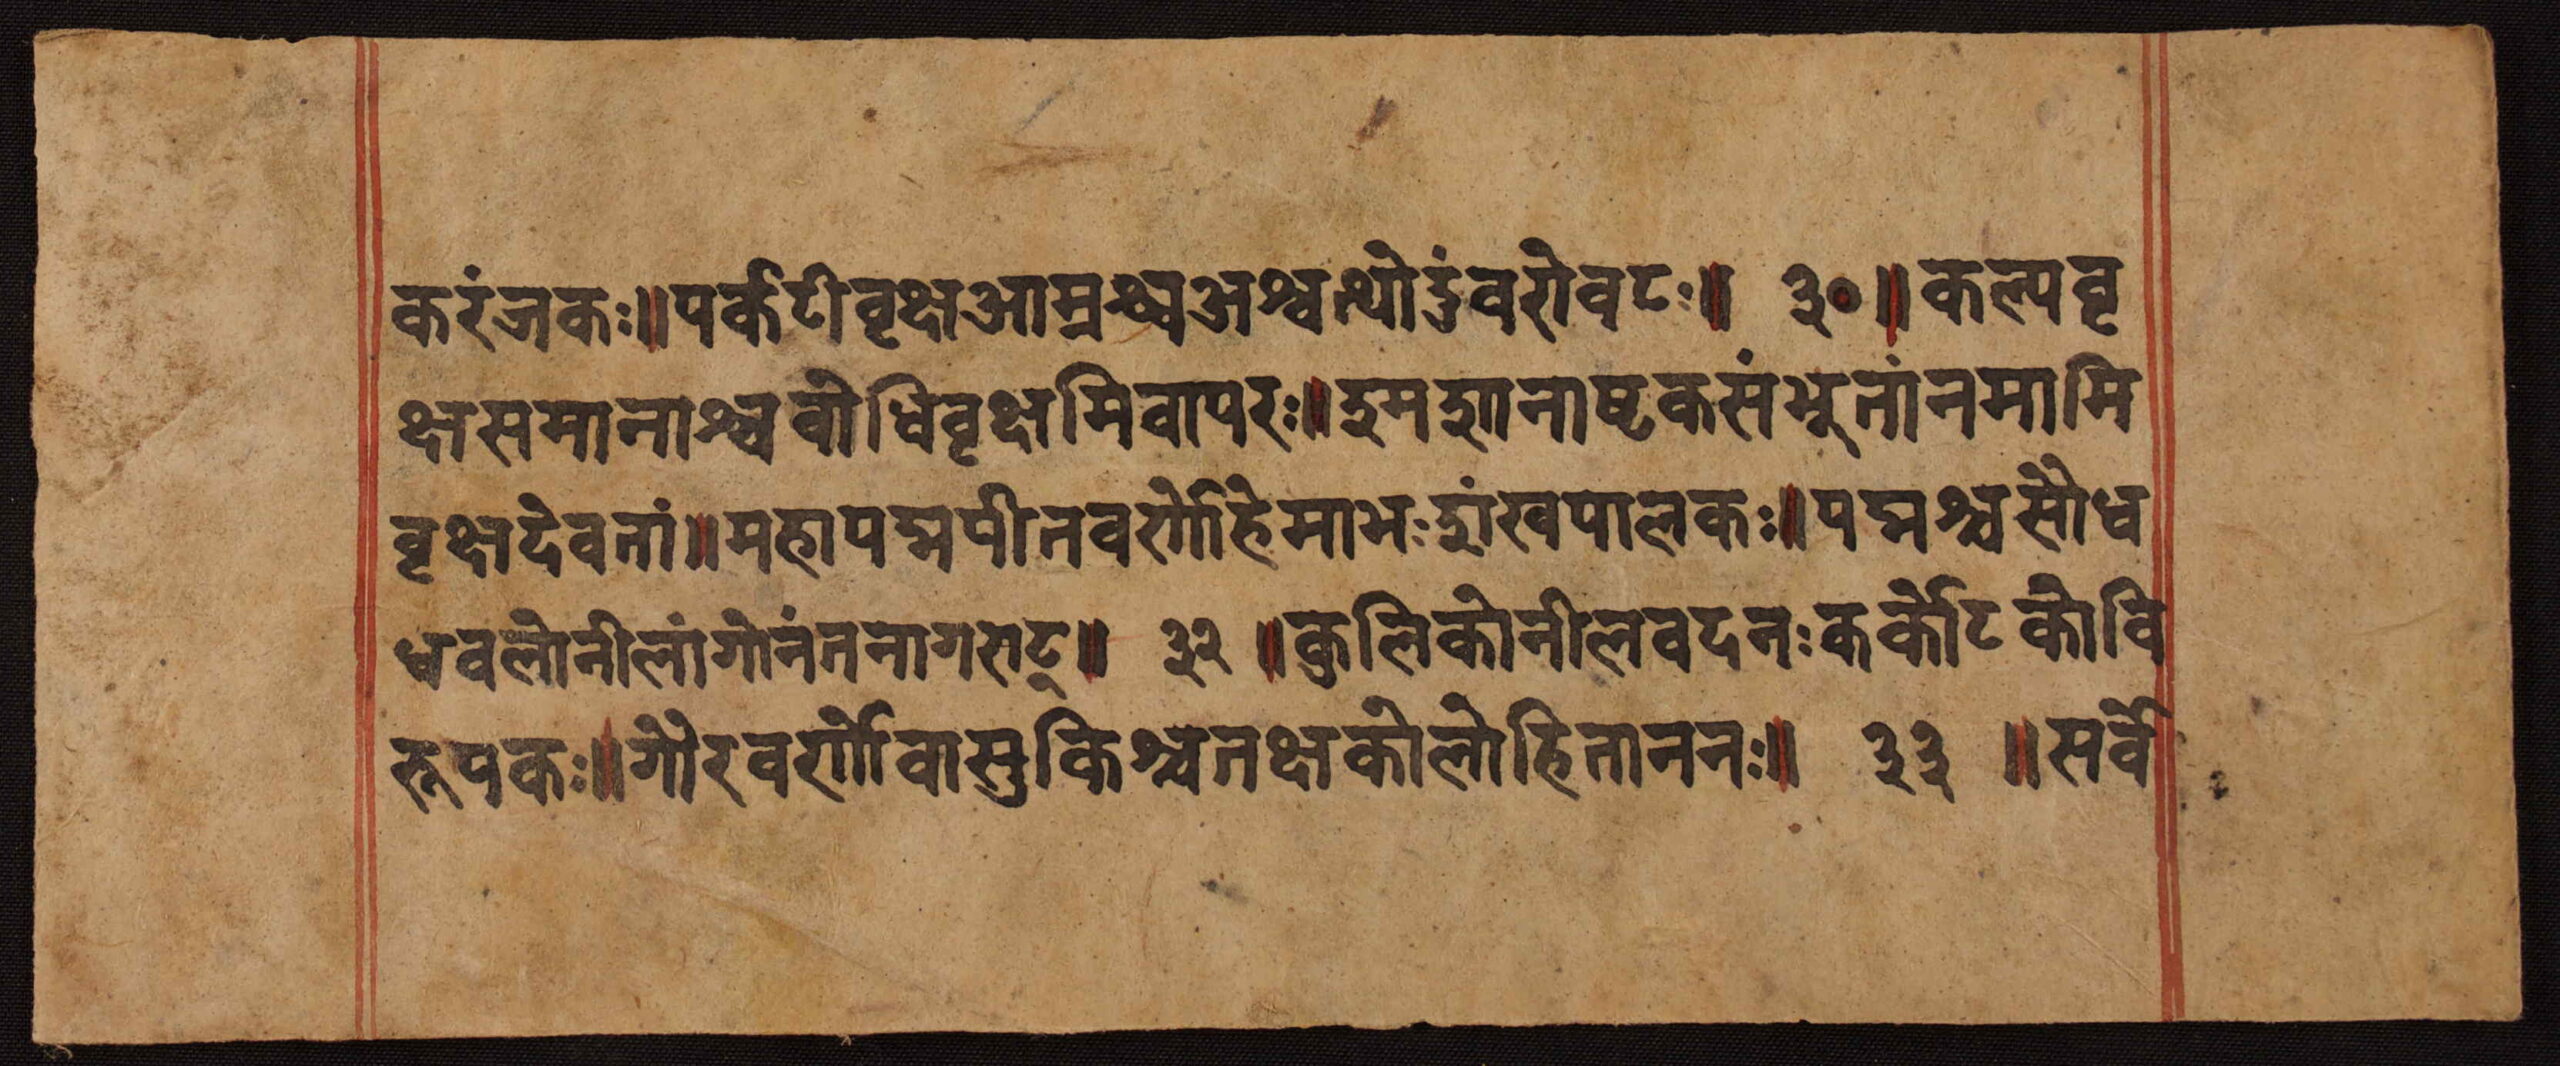 करंजकः॥पर्कटीवृक्षआम्रश्चअश्वत्थोडुंवरोवटः॥ ३०॥कल्पवृ
क्षसमानाश्चवोधिवृक्षमिवापरः॥इमशानाष्टकसंभूतांनमामि
वृक्षदेवतां॥महापद्मपीतवर्णोहिमाभःशंखपालकः॥पद्मश्चसौध
धवलोनीलांगोनंतनागराट्॥ ३२ ॥कुलिकोनीलवदनःकर्कोटकोवि
रूपकः॥गौरवर्णोवासुकिश्चतक्षकोलोहिताननः॥ ३३ ॥सर्वे